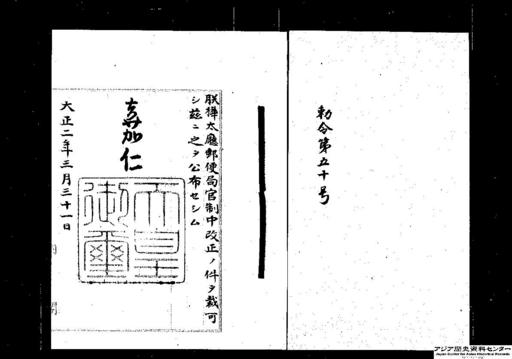 勅令第五十号
朕樺太廳郵便局官制中改正ノ件ヲ裁可
シ茲ニ之ヲ公布セシム
嘉仁
天皇御璽
大正二年三月三十一日
アジア歴史資料センター
Japan Center for Asian Historical Records